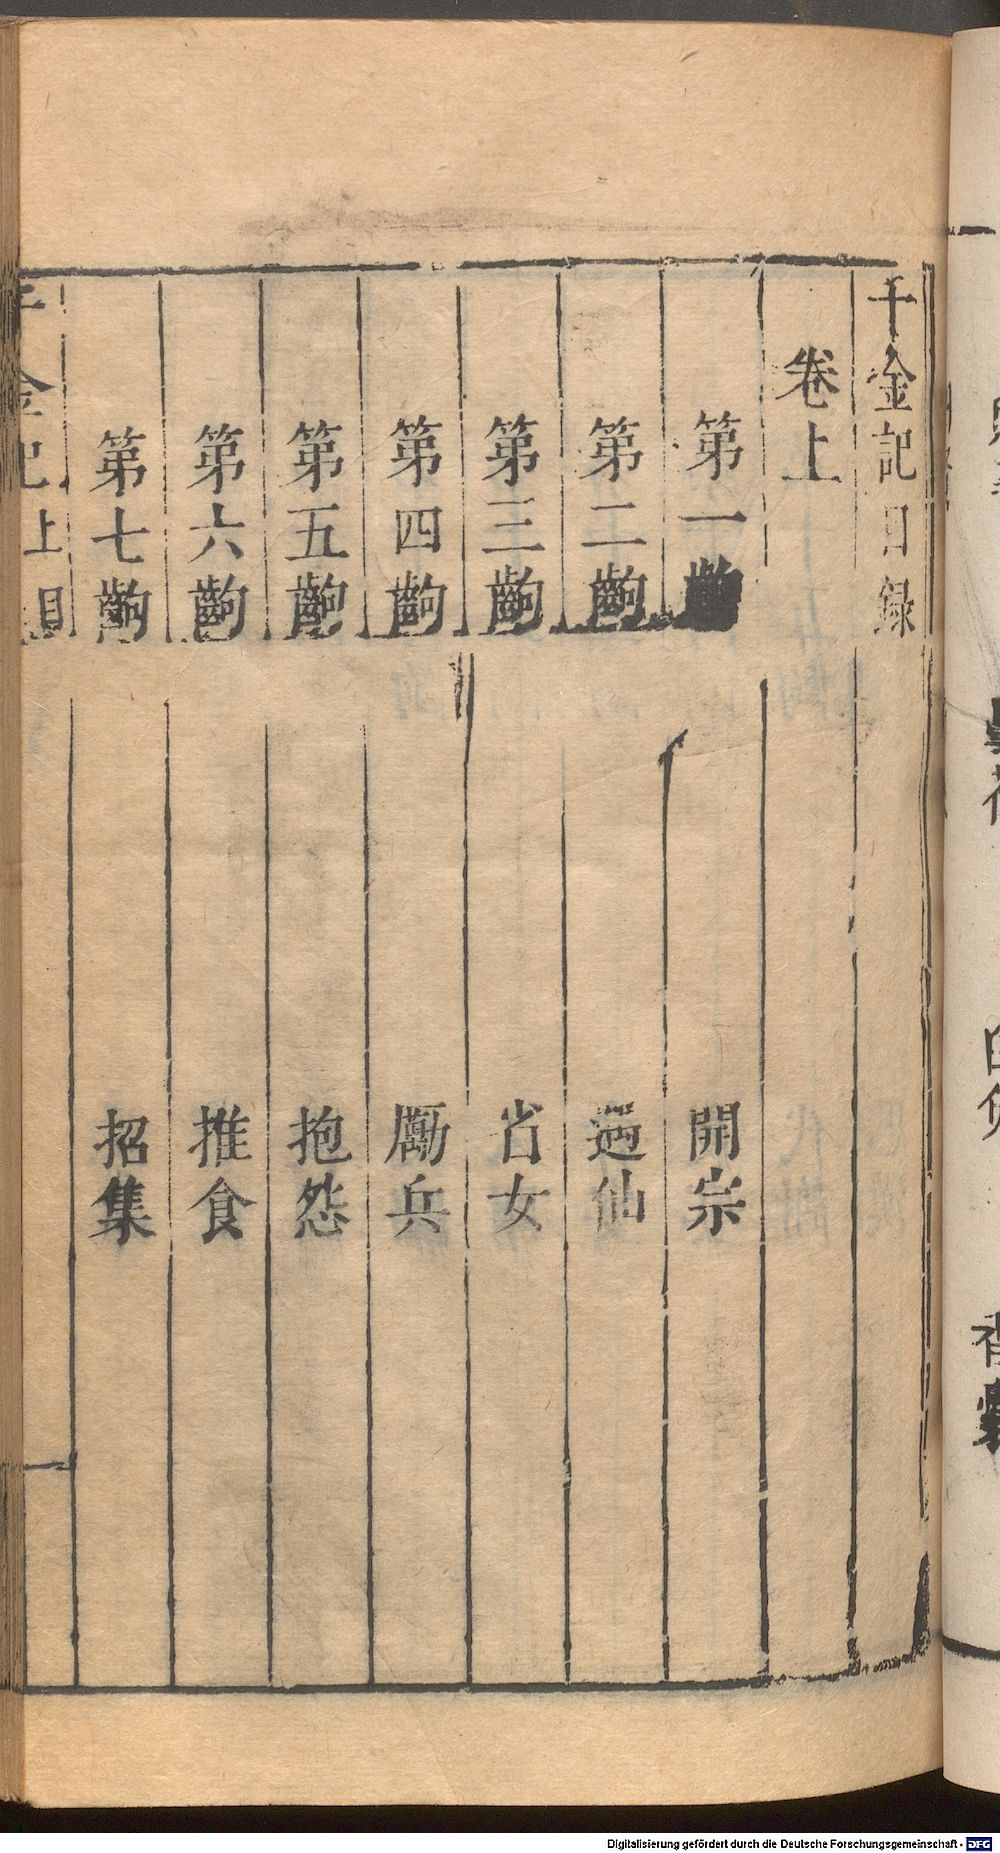 千金記目録
卷上
第一齣 開宗
第二齣 遇仙
第三齣 省女
第四齣 勵兵
第五齣 抱怨
第六齣 推食
第七齣 招集
千金記上 目
Digitalisierung gefördert durch die Deutsche Forschungsgemeinschaft - DFG